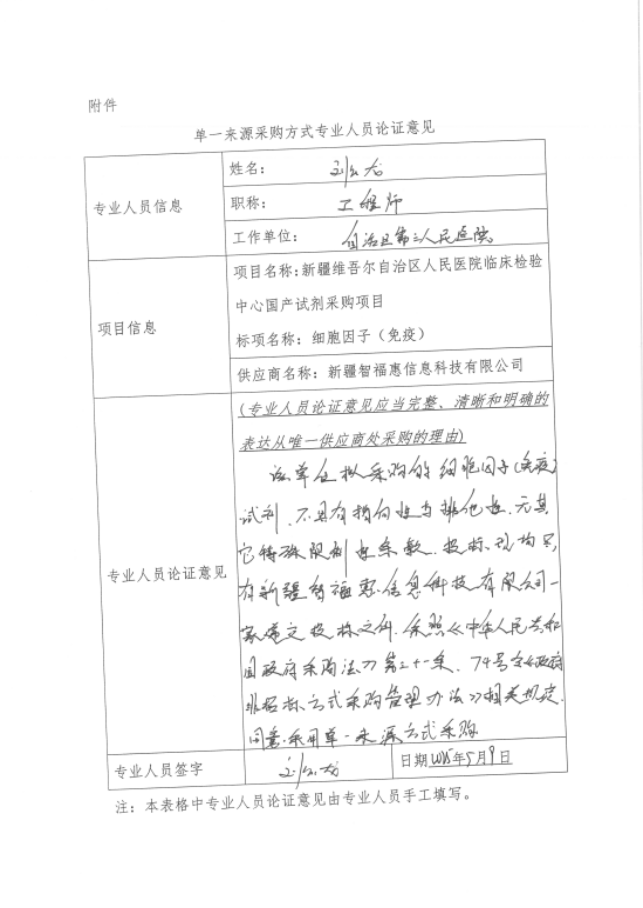 附件
单一来源采购方式专业人员论证意见
专业人员信息
姓名：
职称： 工程师
工作单位： 自治区第三人民医院
项目信息
项目名称：新疆维吾尔自治区人民医院临床检验
中心国产试剂采购项目
标项名称：细胞因子（免疫）
供应商名称：新疆智福惠信息科技有限公司
专业人员论证意见
（专业人员论证意见应当完整、清晰和明确的
表达从唯一供应商处采购的理由）
该单位拟采购的细胞因子（免疫）
试剂，不具有指向性与排他性，无其
它特殊限制性条款，投标 均只
有新疆智福惠信息科技有限公司一
家递交投标文件，依照《中华人民共和
国政府采购法》第三十一条、74号令《政府
非招标方式采购管理办法》相关规定，
同意采用单一来源方式采购
专业人员签字
日期2025年5月9日
注：本表格中专业人员论证意见由专业人员手工填写。